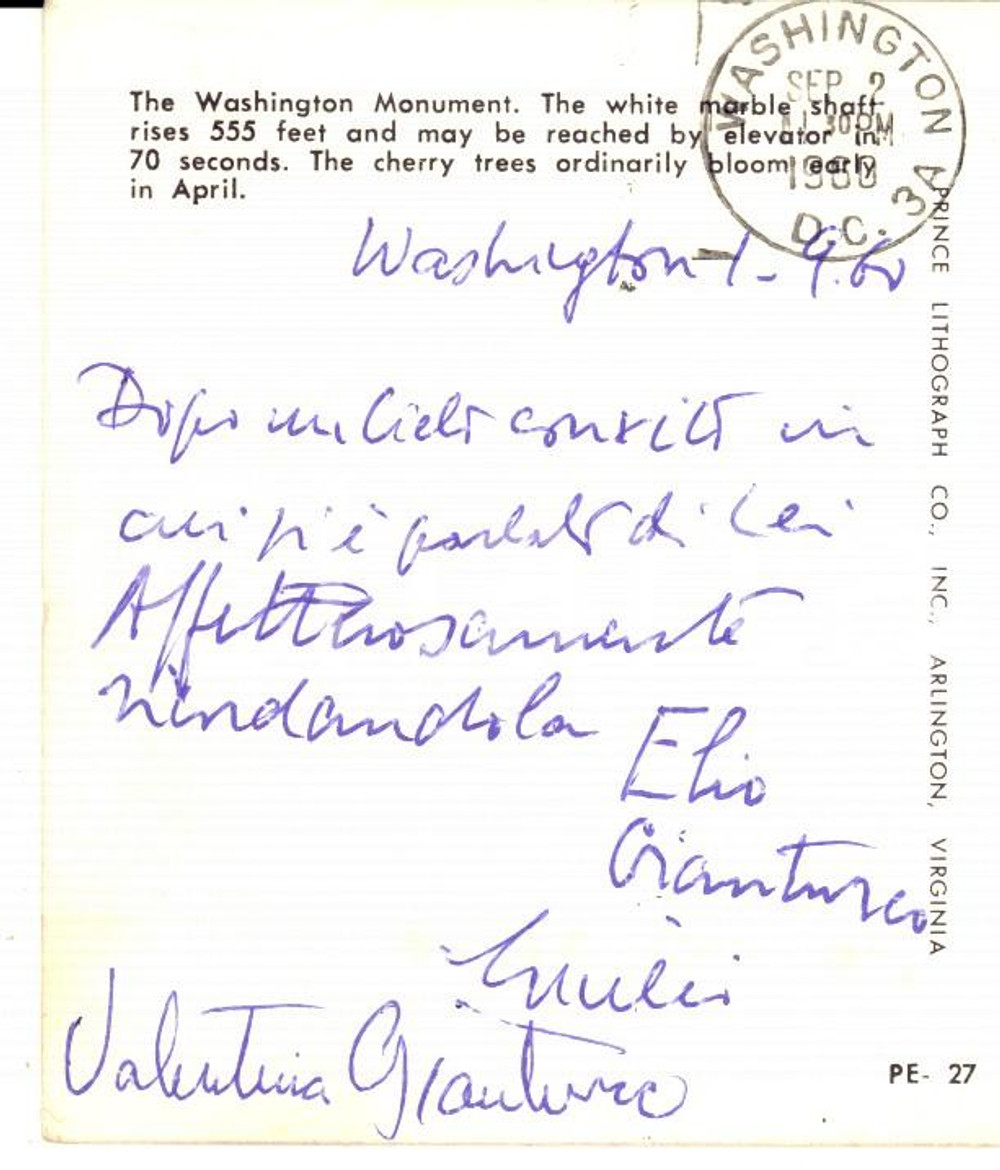 The Washington Monument. The white marble shaft
rises 555 feet and may be reached by elevator in
70 seconds. The cherry trees ordinarily bloom early
in April.
WASHINGTON
SEP 2
30 PM
1960
D.C. 3A
Washington 1-9.60
Dopo un lieto convito in
cui si è parlato di Lei
Affettuosamente
ricordandola
Elio
Gianturco
Valentina Gianturco
PRINCE LITHOGRAPH CO., INC., ARLINGTON, VIRGINIA
PE- 27